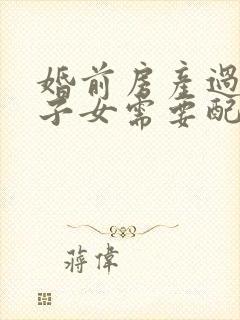 婚前房產過
子女需要配
蔣偉